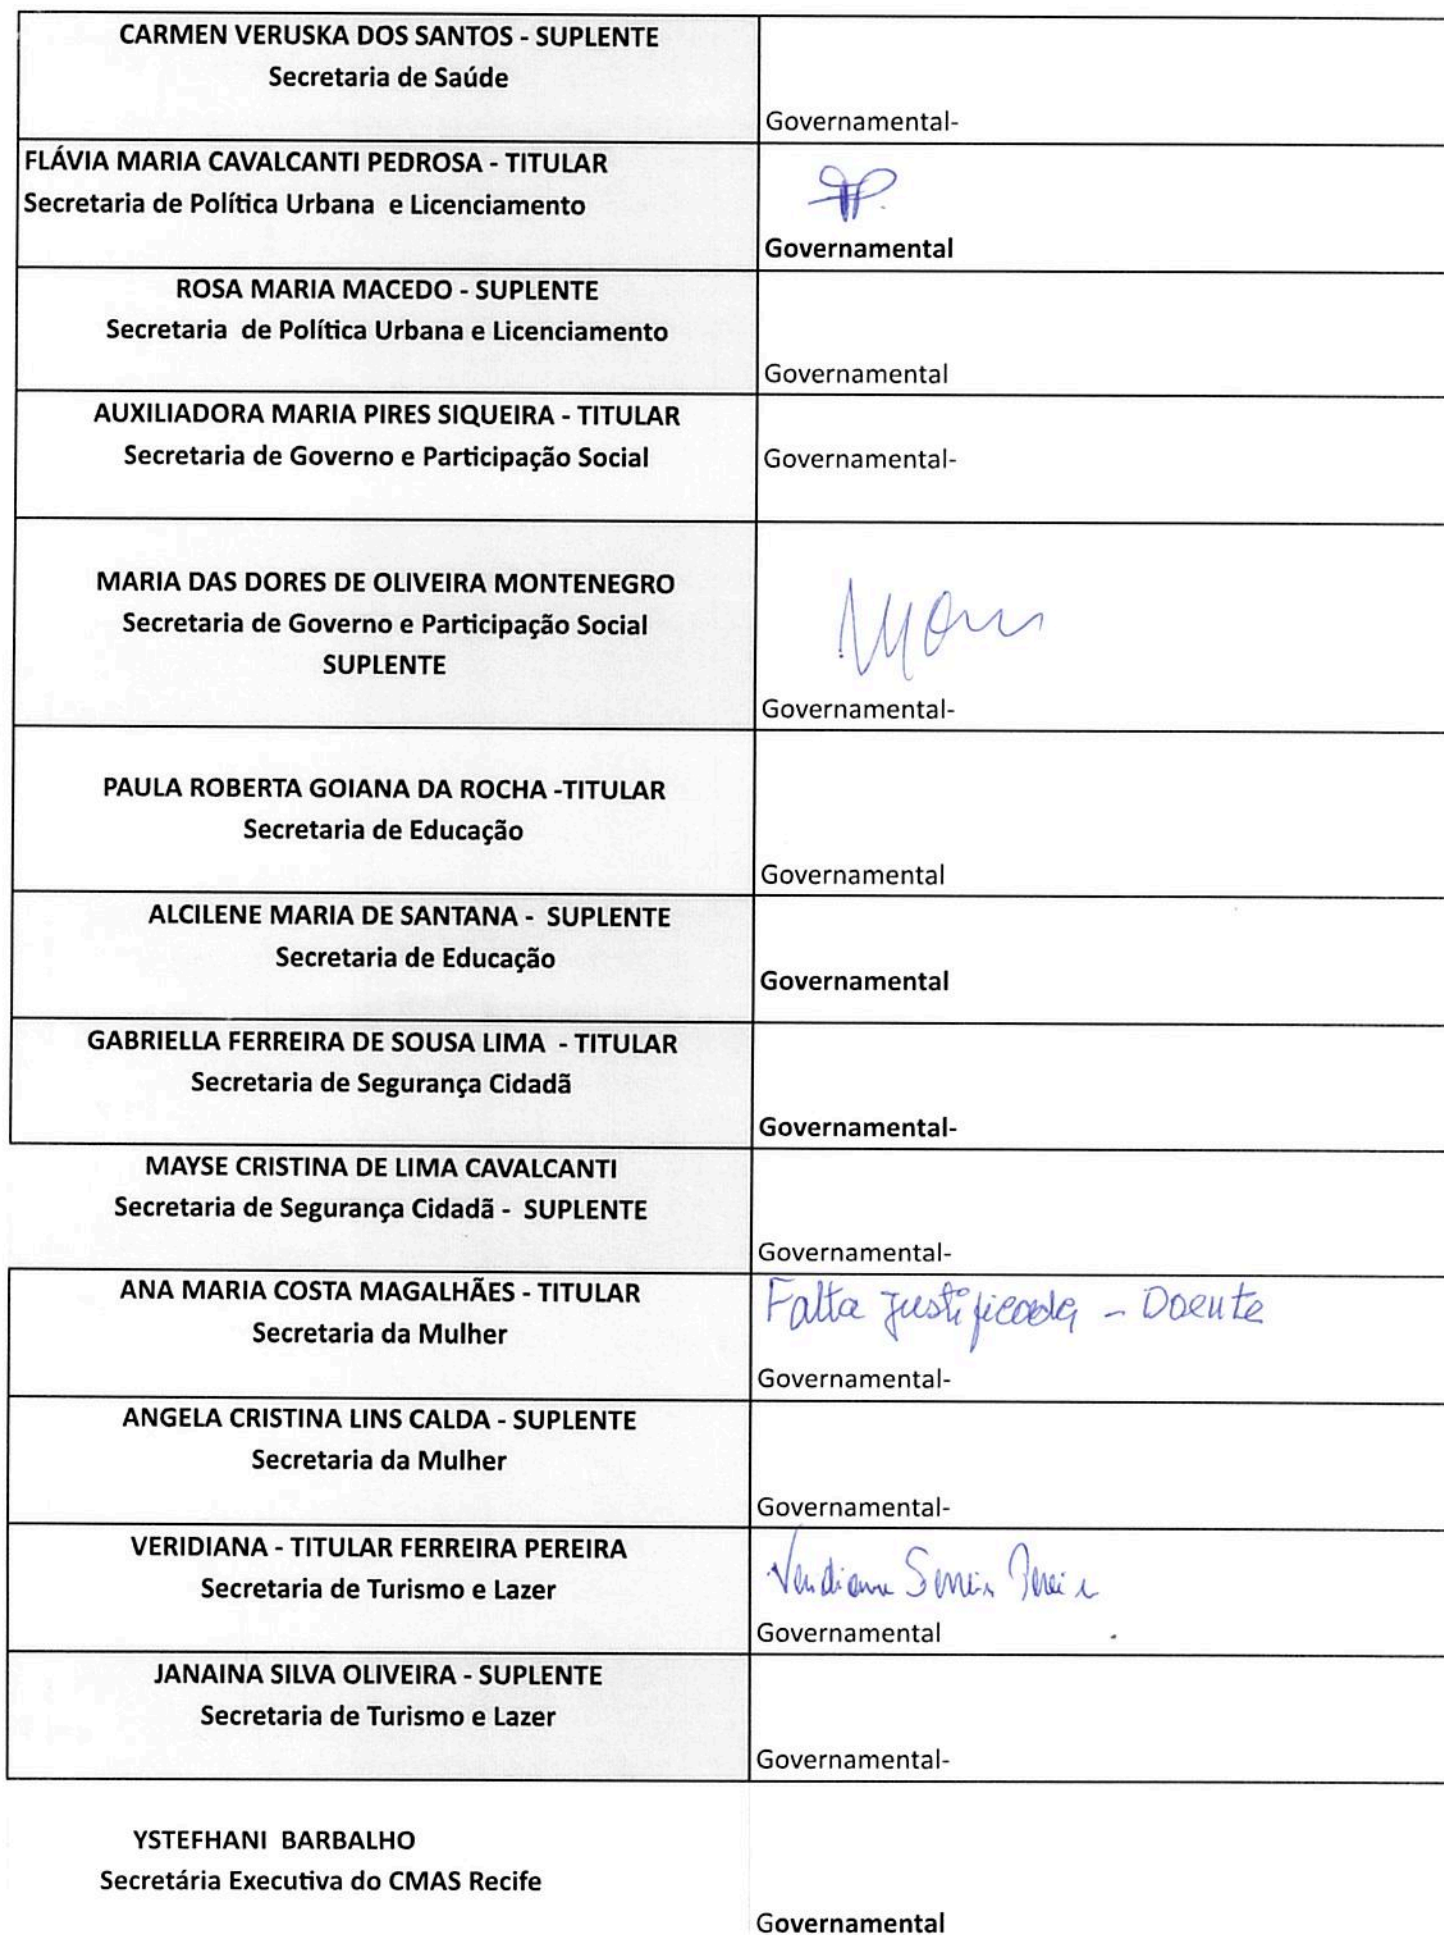 CARMEN VERUSKA DOS SANTOS - SUPLENTE
Secretaria de Saúde
Governamental-
FLÁVIA MARIA CAVALCANTI PEDROSA - TITULAR
Secretaria de Política Urbana e Licenciamento
Governamental
ROSA MARIA MACEDO - SUPLENTE
Secretaria de Política Urbana e Licenciamento
Governamental
AUXILIADORA MARIA PIRES SIQUEIRA - TITULAR
Secretaria de Governo e Participação Social
Governamental-
MARIA DAS DORES DE OLIVEIRA MONTENEGRO
Secretaria de Governo e Participação Social
SUPLENTE
Governamental-
PAULA ROBERTA GOIANA DA ROCHA -TITULAR
Secretaria de Educação
Governamental
ALCILENE MARIA DE SANTANA - SUPLENTE
Secretaria de Educação
Governamental
GABRIELLA FERREIRA DE SOUSA LIMA - TITULAR
Secretaria de Segurança Cidadã
Governamental-
MAYSE CRISTINA DE LIMA CAVALCANTI
Secretaria de Segurança Cidadã - SUPLENTE
Governamental-
ANA MARIA COSTA MAGALHÃES - TITULAR
Secretaria da Mulher
Falta justificada - Doente
Governamental-
ANGELA CRISTINA LINS CALDA - SUPLENTE
Secretaria da Mulher
Governamental-
VERIDIANA - TITULAR FERREIRA PEREIRA
Secretaria de Turismo e Lazer
Governamental
JANAINA SILVA OLIVEIRA - SUPLENTE
Secretaria de Turismo e Lazer
Governamental-
YSTEFHANI BARBALHO
Secretária Executiva do CMAS Recife
Governamental